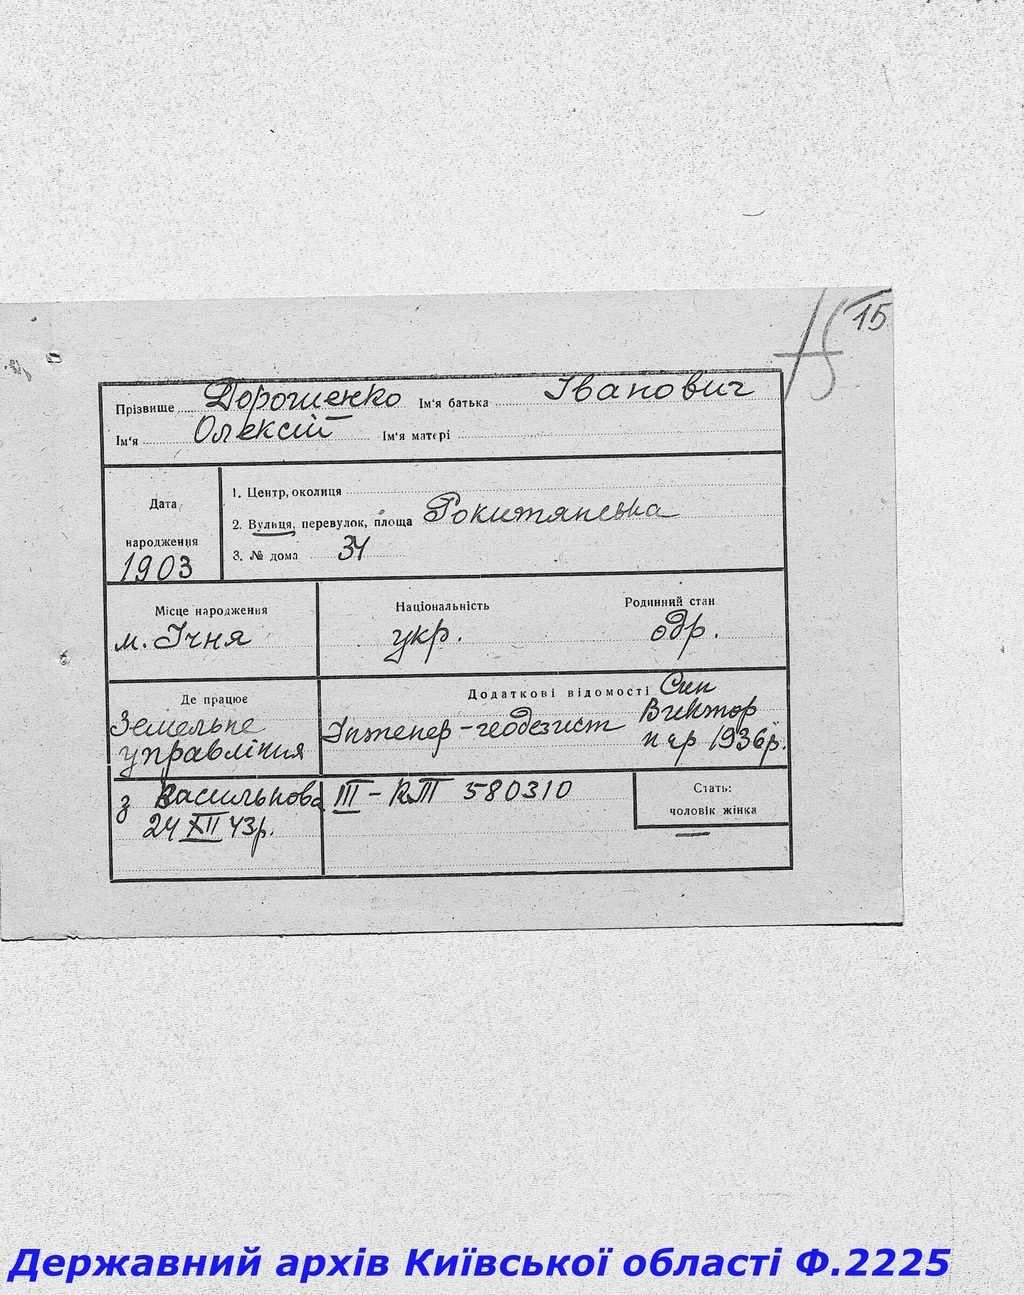 15
Прізвище Дорошенко Ім'я батька Іванович
Ім'я Олексій Ім'я матері
Дата
народження
1903
1. Центр, околиця
2. Вулиця, перевулок, площа Рокитянська
3. № дома 34
Місце народження
м. Ічня
Національність
укр.
Родинний стан
одр.
Де працює
Земельне
управління
Додаткові відомості Син
Інженер-геодезист Віктор
1936р.
з Василькова
24 XII 43р.
III - КТ 580310
Стать:
чоловік жінка
Державний архів Київської області Ф.2225